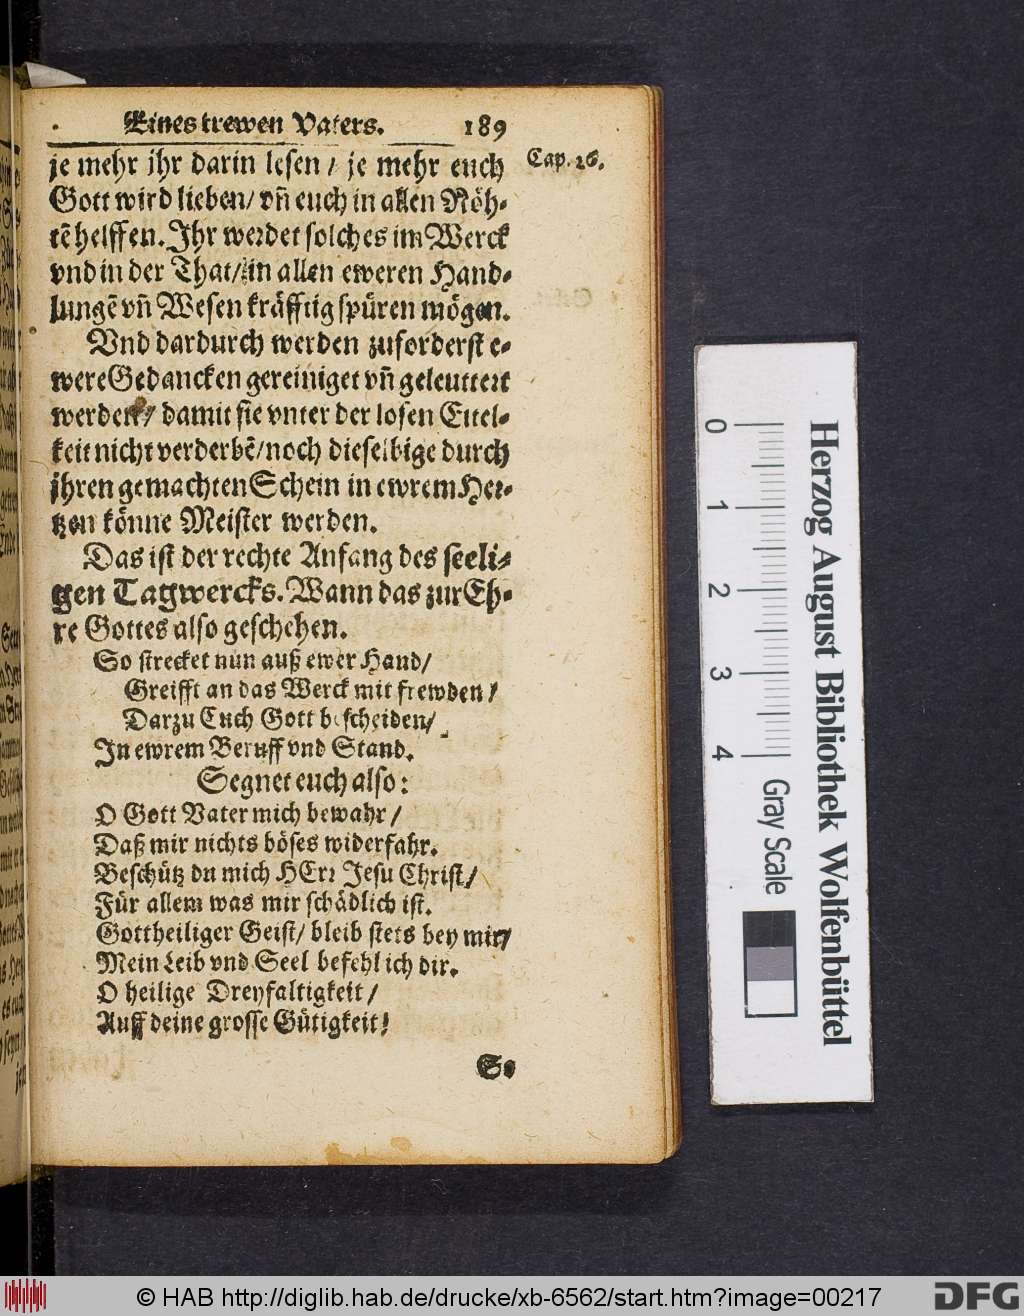 Eines trewen Vaters. 189
je mehr jhr darin lesen / je mehr euch
Cap. 26.
Gott wird lieben / vñ euch in allen Nöh-
tẽ helffen. Ihr werdet solches im Werck
vnd in der That / in allen eweren Hand-
lungẽ vñ Wesen kräfftig spüren mögen.
Vnd dardurch werden zuforderst e-
were Gedancken gereiniget vñ geleuttert
werden / damit sie vnter der losen Eitel-
keit nicht verderbẽ / noch dieselbige durch
jhren gemachten Schein in ewrem Her-
tzen könne Meister werden.
Das ist der rechte Anfang des seeli-
gen Tagwercks. Wann das zur Eh-
re Gottes also geschehen.
So strecket nun auß ewer Hand /
Greifft an das Werck mit frewden /
Darzu Euch Gott bescheiden /
In ewrem Beruff vnd Stand.
Segnet euch also:
O Gott Vater mich bewahr /
Daß mir nichts böses widerfahr.
Beschütz du mich HErr Jesu Christ /
Für allem was mir schädlich ist.
Gott heiliger Geist / bleib stets bey mir /
Mein Leib vnd Seel befehl ich dir.
O heilige Dreyfaltigkeit /
Auff deine grosse Gütigkeit!
So
0 1 2 3 4
Gray Scale
Herzog August Bibliothek Wolfenbüttel
© HAB http://diglib.hab.de/drucke/xb-6562/start.htm?image=00217
DFG